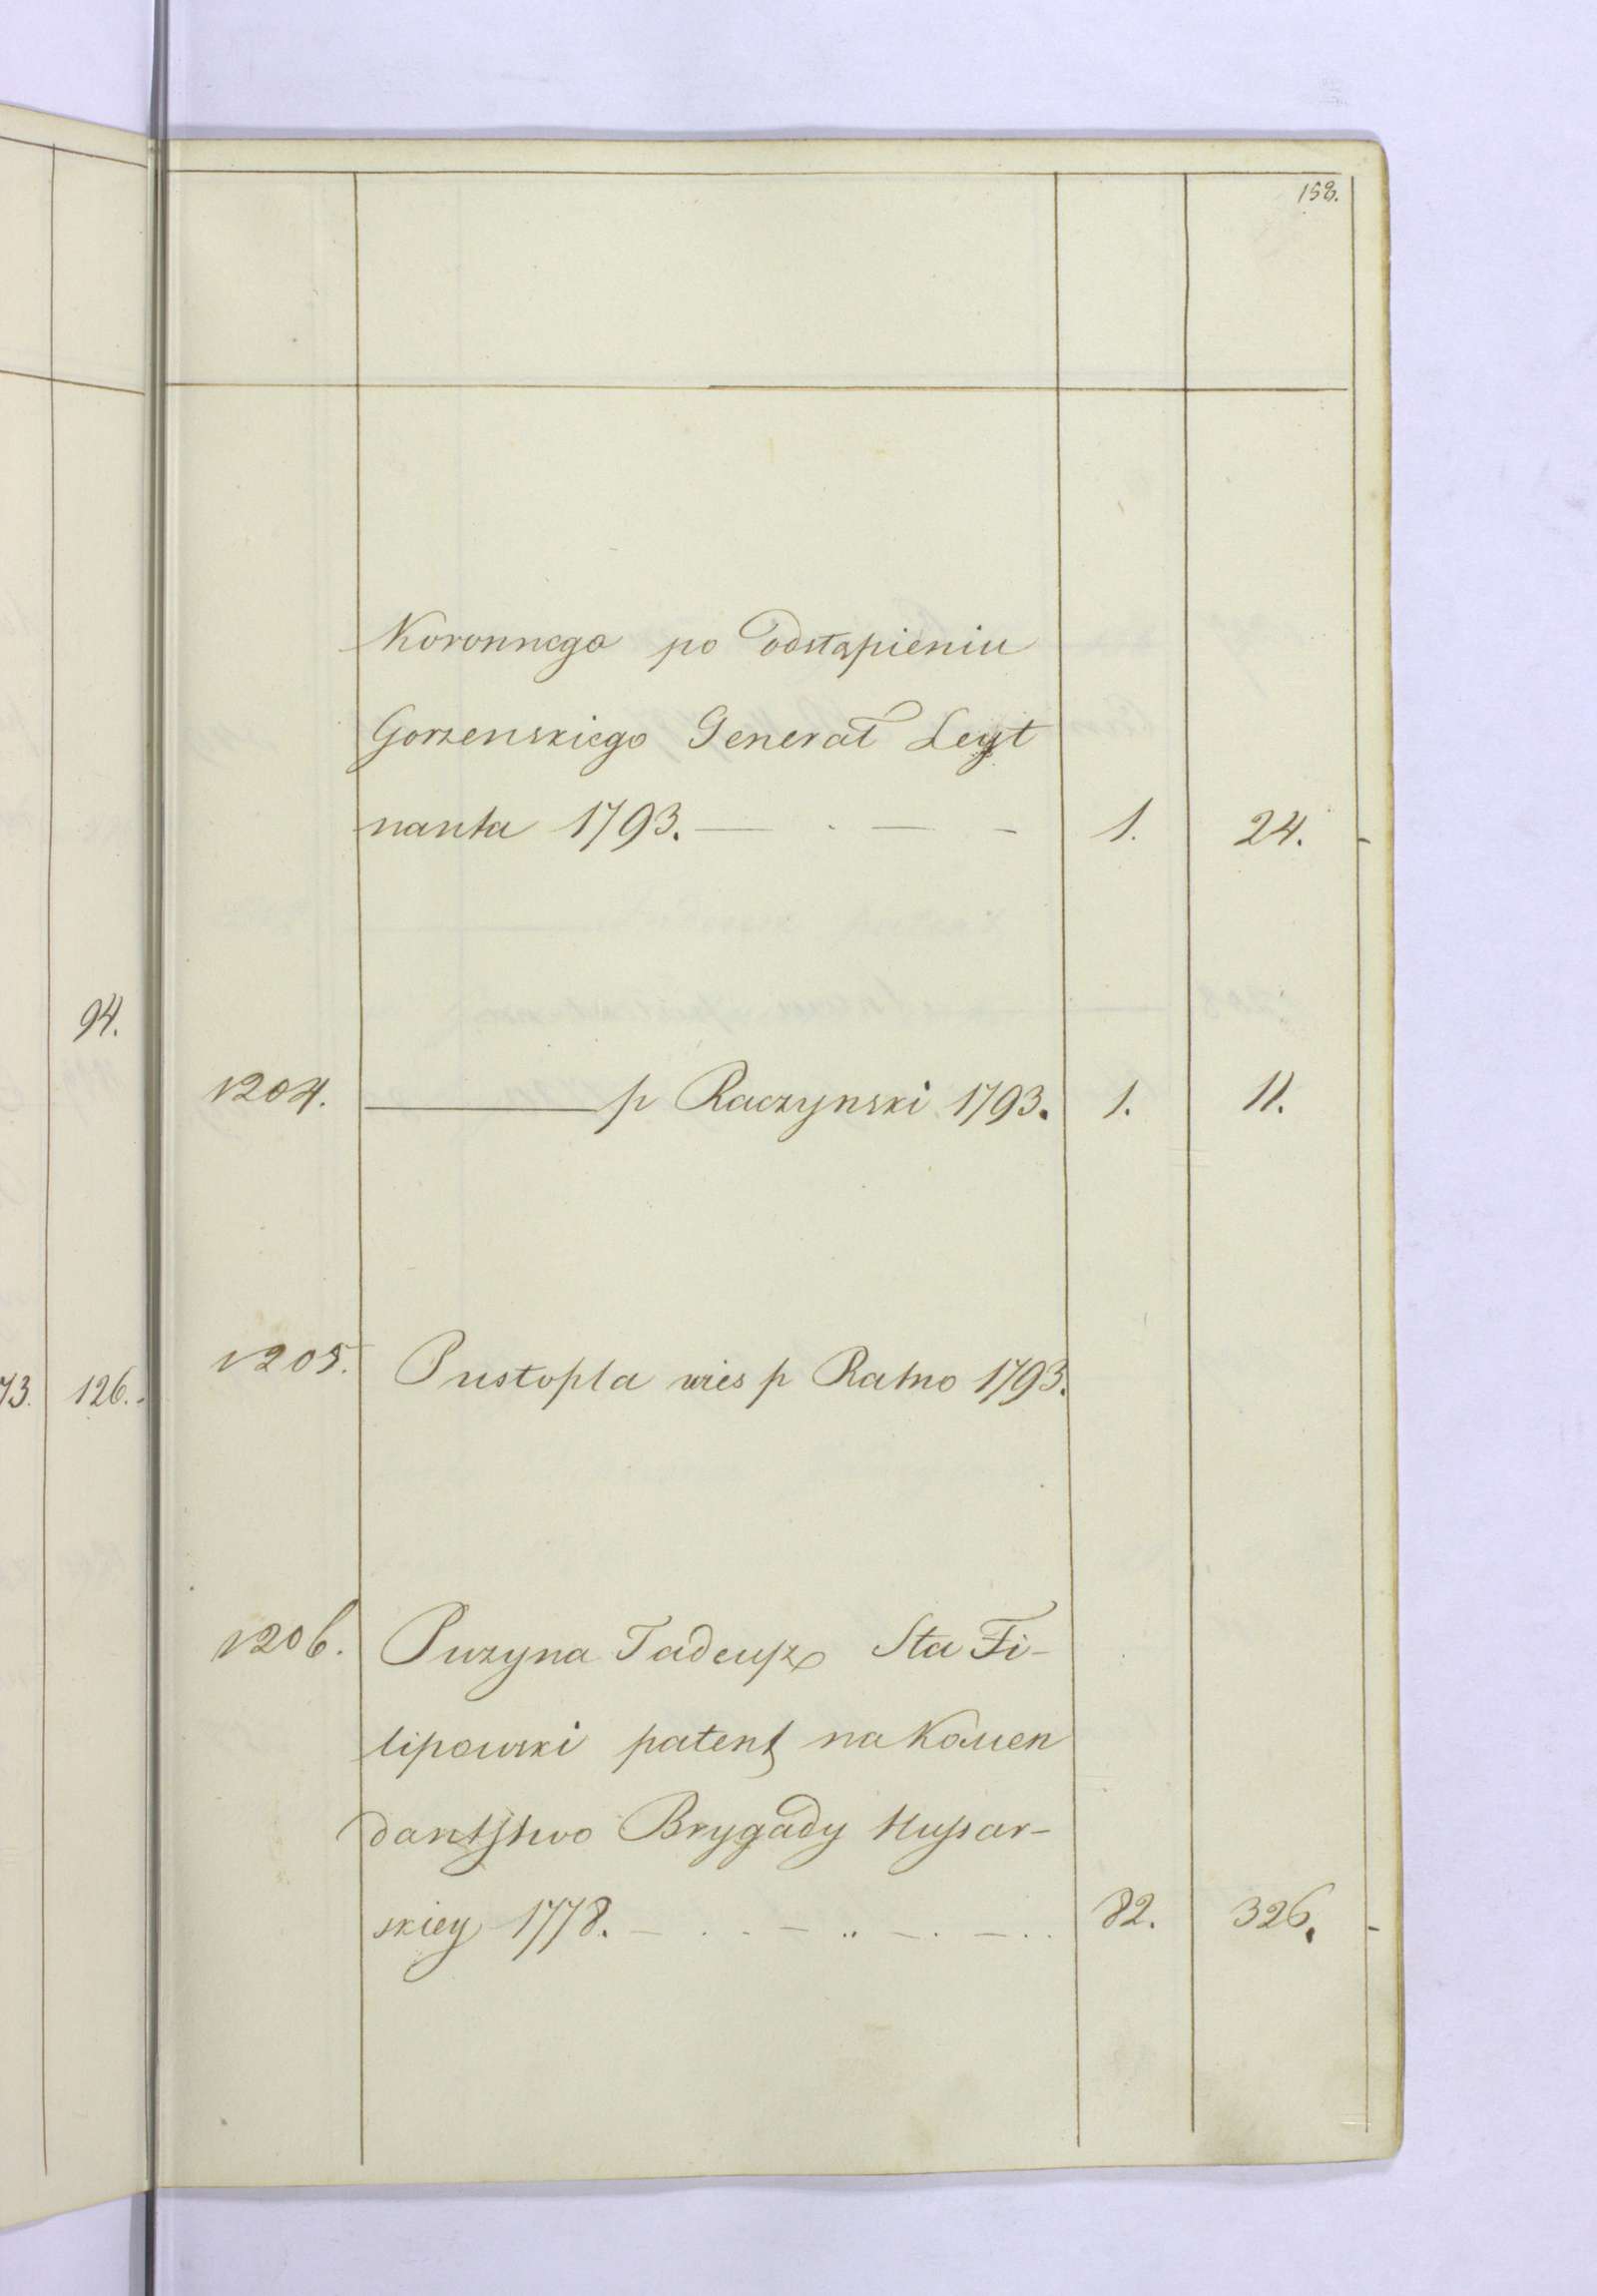 158.
Koronnego po odstąpieniu
Gorzenskiego Generał Leyt
nanta 1793. — . — - 1. 24. -
94.
1204. ——— p Raczynski 1793. 1. 11.
1205. Pustopla wies p Ratno 1793.
73. 126. -
1206. Puzyna Tadeusz Sta Fi-
lipowski patent na Komen
dantstwo Brygady Hussar-
skiey 1778. — . . — .. — . — . . 82. 326. -